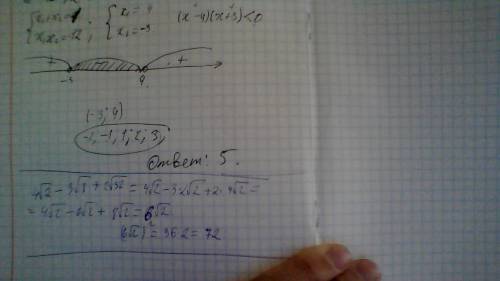 x₁+x₂=1
x₁x₂=-12 ; { x₁ = 4
x₂ = -3
(x-4)(x+3)<0
+ - +
-3 4
(-3; 4)
-1, 1, 2; 3;
Ответ: 5.
√2 - 3√8 + 2√32 = 4√2 - 3·2√2 + 2·4√2 =
= 4√2 - 6√2 + 8√2 = 6√2
(6√2)² = 36·2 = 72